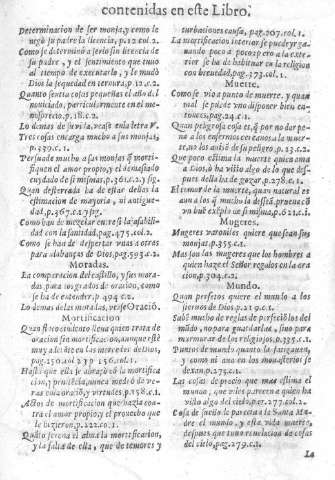 contenidas en este Libro.
Determinacion de ser monja, y como le
negò su padre la licencia, p. 12. col. 2.
Como se determinò a serlo sin licencia de
su padre, y el sentimiento que tuuo
al tiempo de executarlo, y le mudò
Dios la sequedad en ternura, p. 12. c. 2.
Quanto sentia cosas pequeñas el dia del
nouiciado, particularmente en el me-
morecio, p. 18. c. 2.
Lo demas de seuilla, vease en la letra V.
Tres cosas encarga mucho a sus monjas,
p. 339. c. 1.
Persuade mucho a sus monjas que morti-
fiquen el amor propio, y el demasiado
cuydado de si mismas, p. 361. c. 2. y sig.
Quan desterrada ha de estar dellas la
estimacion de mayoria, ni antigue-
dad, p. 367. c. 2. y sig.
Como han de mezclar en rezo la afabili-
dad con la santidad, pag. 475. col. 2.
Como se han de despertar vnas a otras
para alabanças de Dios, pag. 593. c. 2.
Moradas.
La comparacion del castillo, y sus mora-
das para los grados de oracion, como
se ha de entender, p. 494. c. 2.
Lo demas de las moradas, vease Oraciõ.
Mortificacion
Quan sin cimiento lleua quien trata de
oracion sin mortificacion, aunque estè
muy adelante en las mercedes de Dios,
pag. 150. col. 2. y p. 156. col. 1.
Hasta que ella se abraçò con la mortifica
cion, y penitencia, nunca medrò de ve-
ras en oracion, y virtudes. p. 158. c. 1.
Actos de mortificacion que hazia con-
tra el amor propio, y el prouecho que
le hizieron, p. 222. co. 1.
Quanto serena el alma la mortificacion,
y la falta de ella, que de temores y
turbaciones causa, pag. 207. col. 1.
La mortificacion interior se puede yr ga-
nando poco a poco: pero a la exte-
rior se ha de habituar en la religion
con breuedad, pag. 173. col. 1.
Muerte.
Como se vio a punto de muerte, y quan
mal se puede vno disponer bien en-
tonces, pag. 24. c. 1.
Quan peligrosa cosa es, que por no dar pe-
na a los enfermos cercanos a la muer-
te, no los auisen de su peligro, p. 23. c. 2.
Que poco estima la muerte quien ama
a Dios, ò ha visto algo de lo que des-
pues della ha de gozar, p. 278. c. 1.
El temor de la muerte, quan natural es
aun a los que mucho la desseã, prueuase cõ
vn buẽ exẽplo de si misma, p. 621. c. 1.
Mugeres.
Mugeres varoniles quiere que sean sus
monjas, p. 355. c. 1.
Mas son las mugeres que los hombres a
quien haze el Señor regalos en la ora
cion, p. 304. c. 2.
Mundo.
Quan perfetos quiere el mundo a los
sieruos de Dios, p. 215. c. 1.
Sabe mucho de reglas de perfeciõ los del
mũdo, no para guardarlas, sino para
murmurar de los religiosos, p. 335. c. 1.
Puntos de mundo quanto la fatigauan,
y como ni aun en los monasterios se
dexan, p. 275. c. 1.
Las cosas de precio que mas estima el
mundo, que viles parecen a quien ha
visto algo del cielo, pag. 277. col. 2.
Cosa de sueño le parecia a la Santa Ma-
dre el mundo, y esta vida muerte,
despues que tuuo reuelacion de cosas
del cielo, pag. 279. c. 1.
La